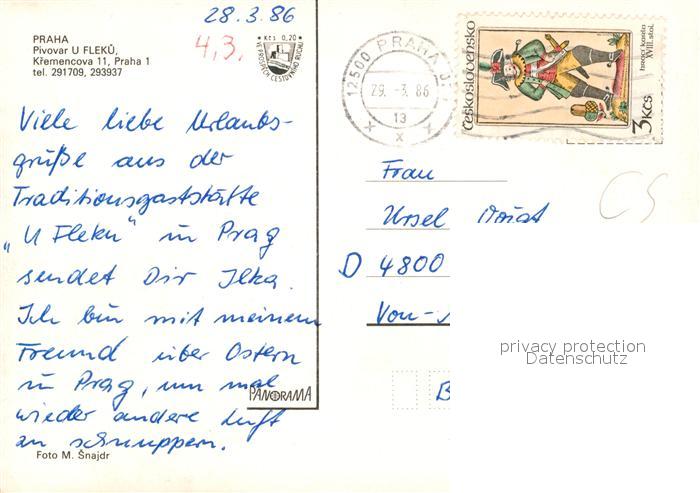 28.3.86
4,3,
PRAHA
Pivovar U FLEKŮ,
Křemencova 11, Praha 1
tel. 291709, 293937
Kčs 0,20
VE PROSPĚCH CESTOVNÍHO RUCHU
12500 PRAHA
29.-3. 86
13
x x x
Československo
hrací karta
XVIII. stol.
3 Kčs
Viele liebe Urlaubs-
grüße aus der
Traditionsgaststätte
„U Fleku" in Prag
sendet Dir Ilka.
Ich bin mit meinem
Freund über Ostern
in Prag, um mal
wieder andere Luft
zu schnuppern.
Frau
Ursel
D 4800
Von-
B
CS
privacy protection
Datenschutz
PANORAMA
Foto M. Šnajdr